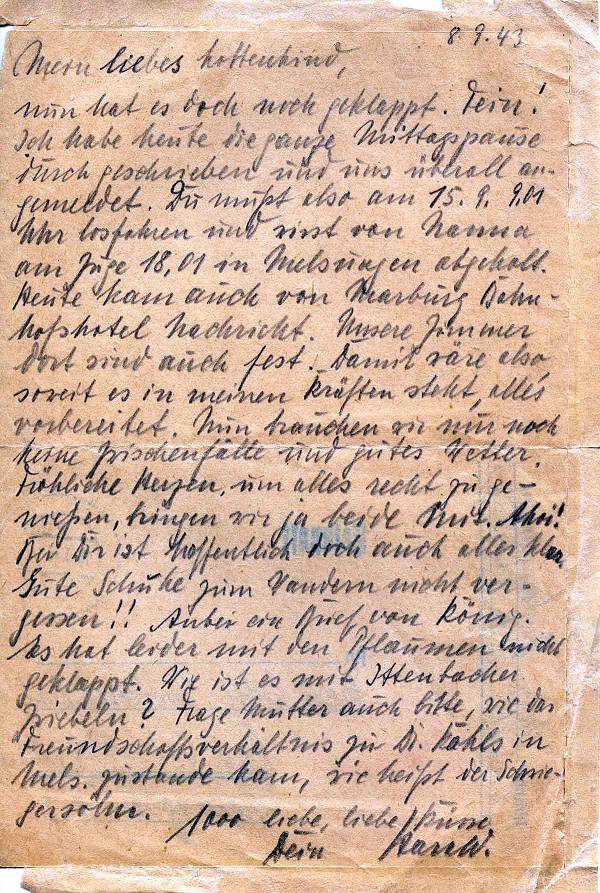 8.9.43
Mein liebes Kottenkind,
nun hat es doch noch geklappt. Fein!
Ich habe heute die ganze Mittagspause
durch geschrieben und uns überall an-
gemeldet. Du mußt also am 15.9. 9.01
Uhr losfahren und wirst von Nanna
am Zuge 18,01 in Melsungen abgeholt.
Heute kam auch von Marburg Bahn-
hofshotel Nachricht. Unsere Zimmer
dort sind auch fest. Damit wäre also,
soweit es in meinen Kräften steht, alles
vorbereitet. Nun brauchen wir nur noch
keine Zwischenfälle und gutes Wetter.
Fröhliche Herzen, um alles recht zu ge-
nießen, bringen wir ja beide mit. Ahoi!
Bei Dir ist hoffentlich doch auch alles klar.
Gute Schuhe zum Wandern nicht ver-
gessen!! Anbei ein Brief von König.
Es hat leider mit den Pflaumen nicht
geklappt. Wie ist es mit Ittenbacher
Zwiebeln? Frage Mutter auch bitte, wie das
Freundschaftsverhältnis zu Di. Kahls in
Mels. zustande kam, wie heißt der Schwie-
gersohn.
1000 liebe, liebe Küsse
Dein Harald.